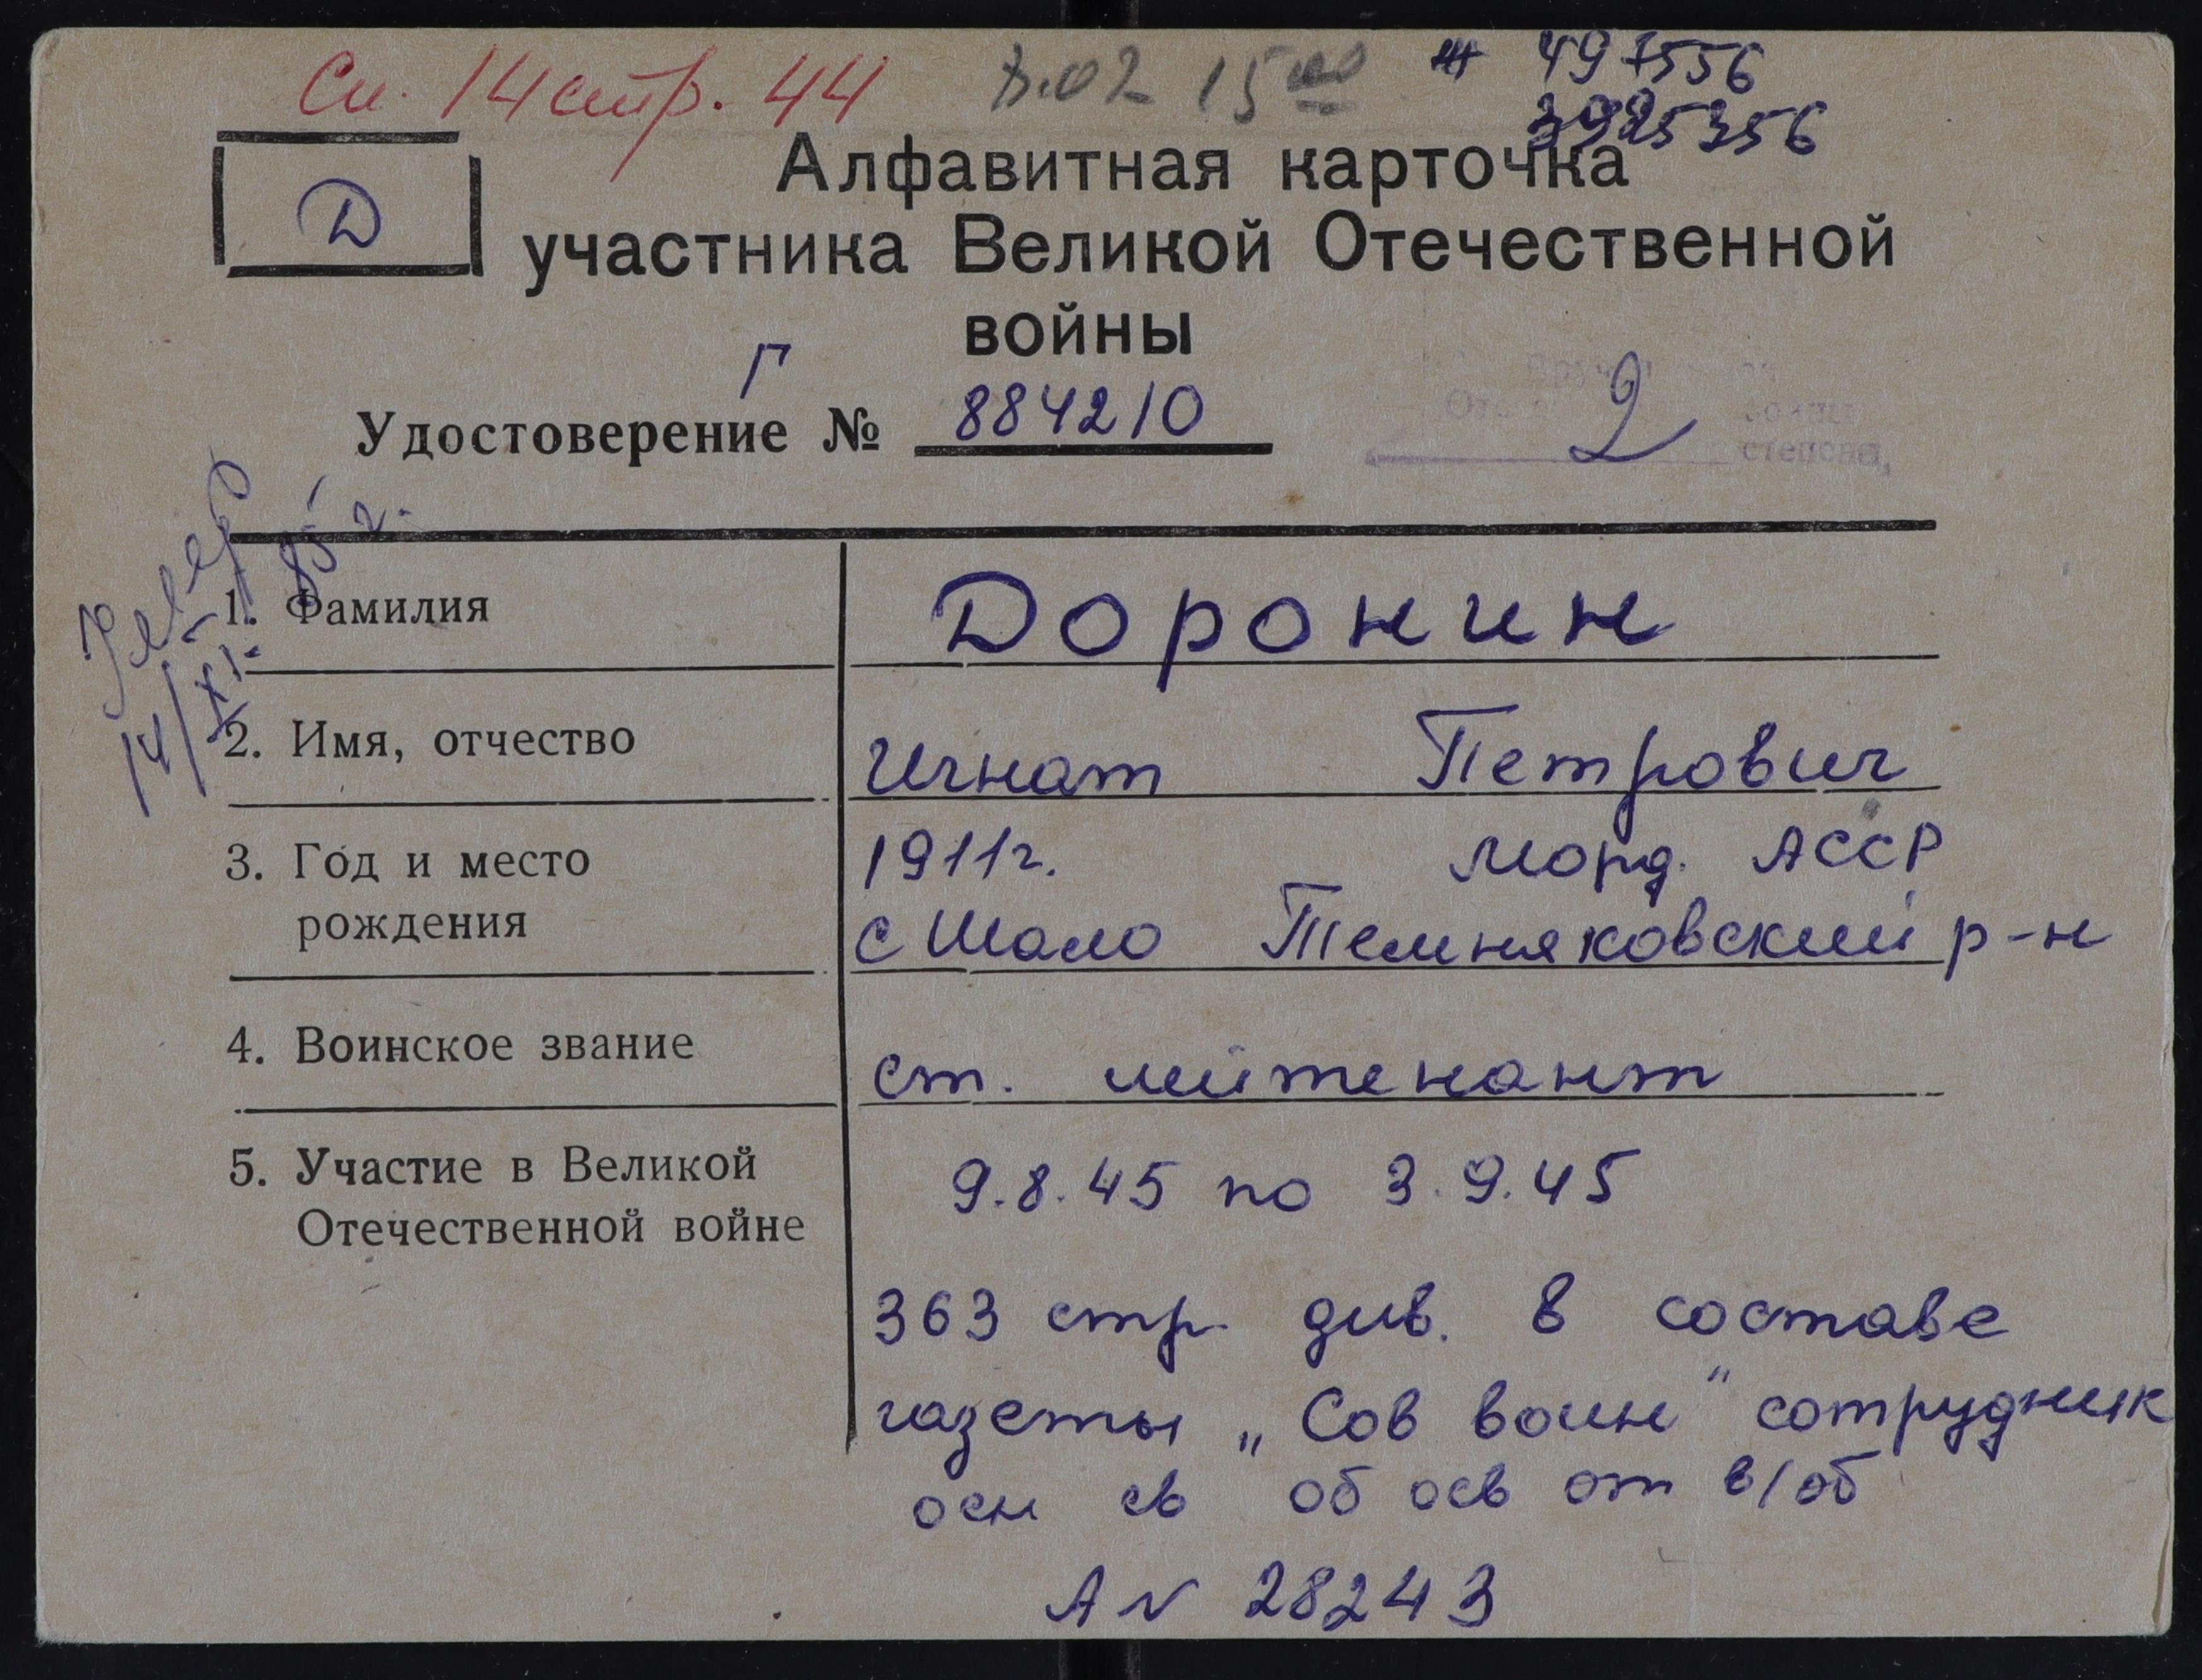 Сп. 14 стр. 44 15 00 497556
3925356
Д
Алфавитная карточка
участника Великой Отечественной
войны
Г
Удостоверение № 884210
2
степени,
85 г.
14/XI
1. Фамилия Доронин
2. Имя, отчество Игнат Петрович
3. Год и место 1911г. Морд. АССР
рождения с Шало Темняковский р-н
4. Воинское звание ст. лейтенант
5. Участие в Великой 9.8.45 по 3.9.45
Отечественной войне
363 стр. див. в составе
газеты „Сов воин" сотрудник
осн св об осв от в/об
А N 28243